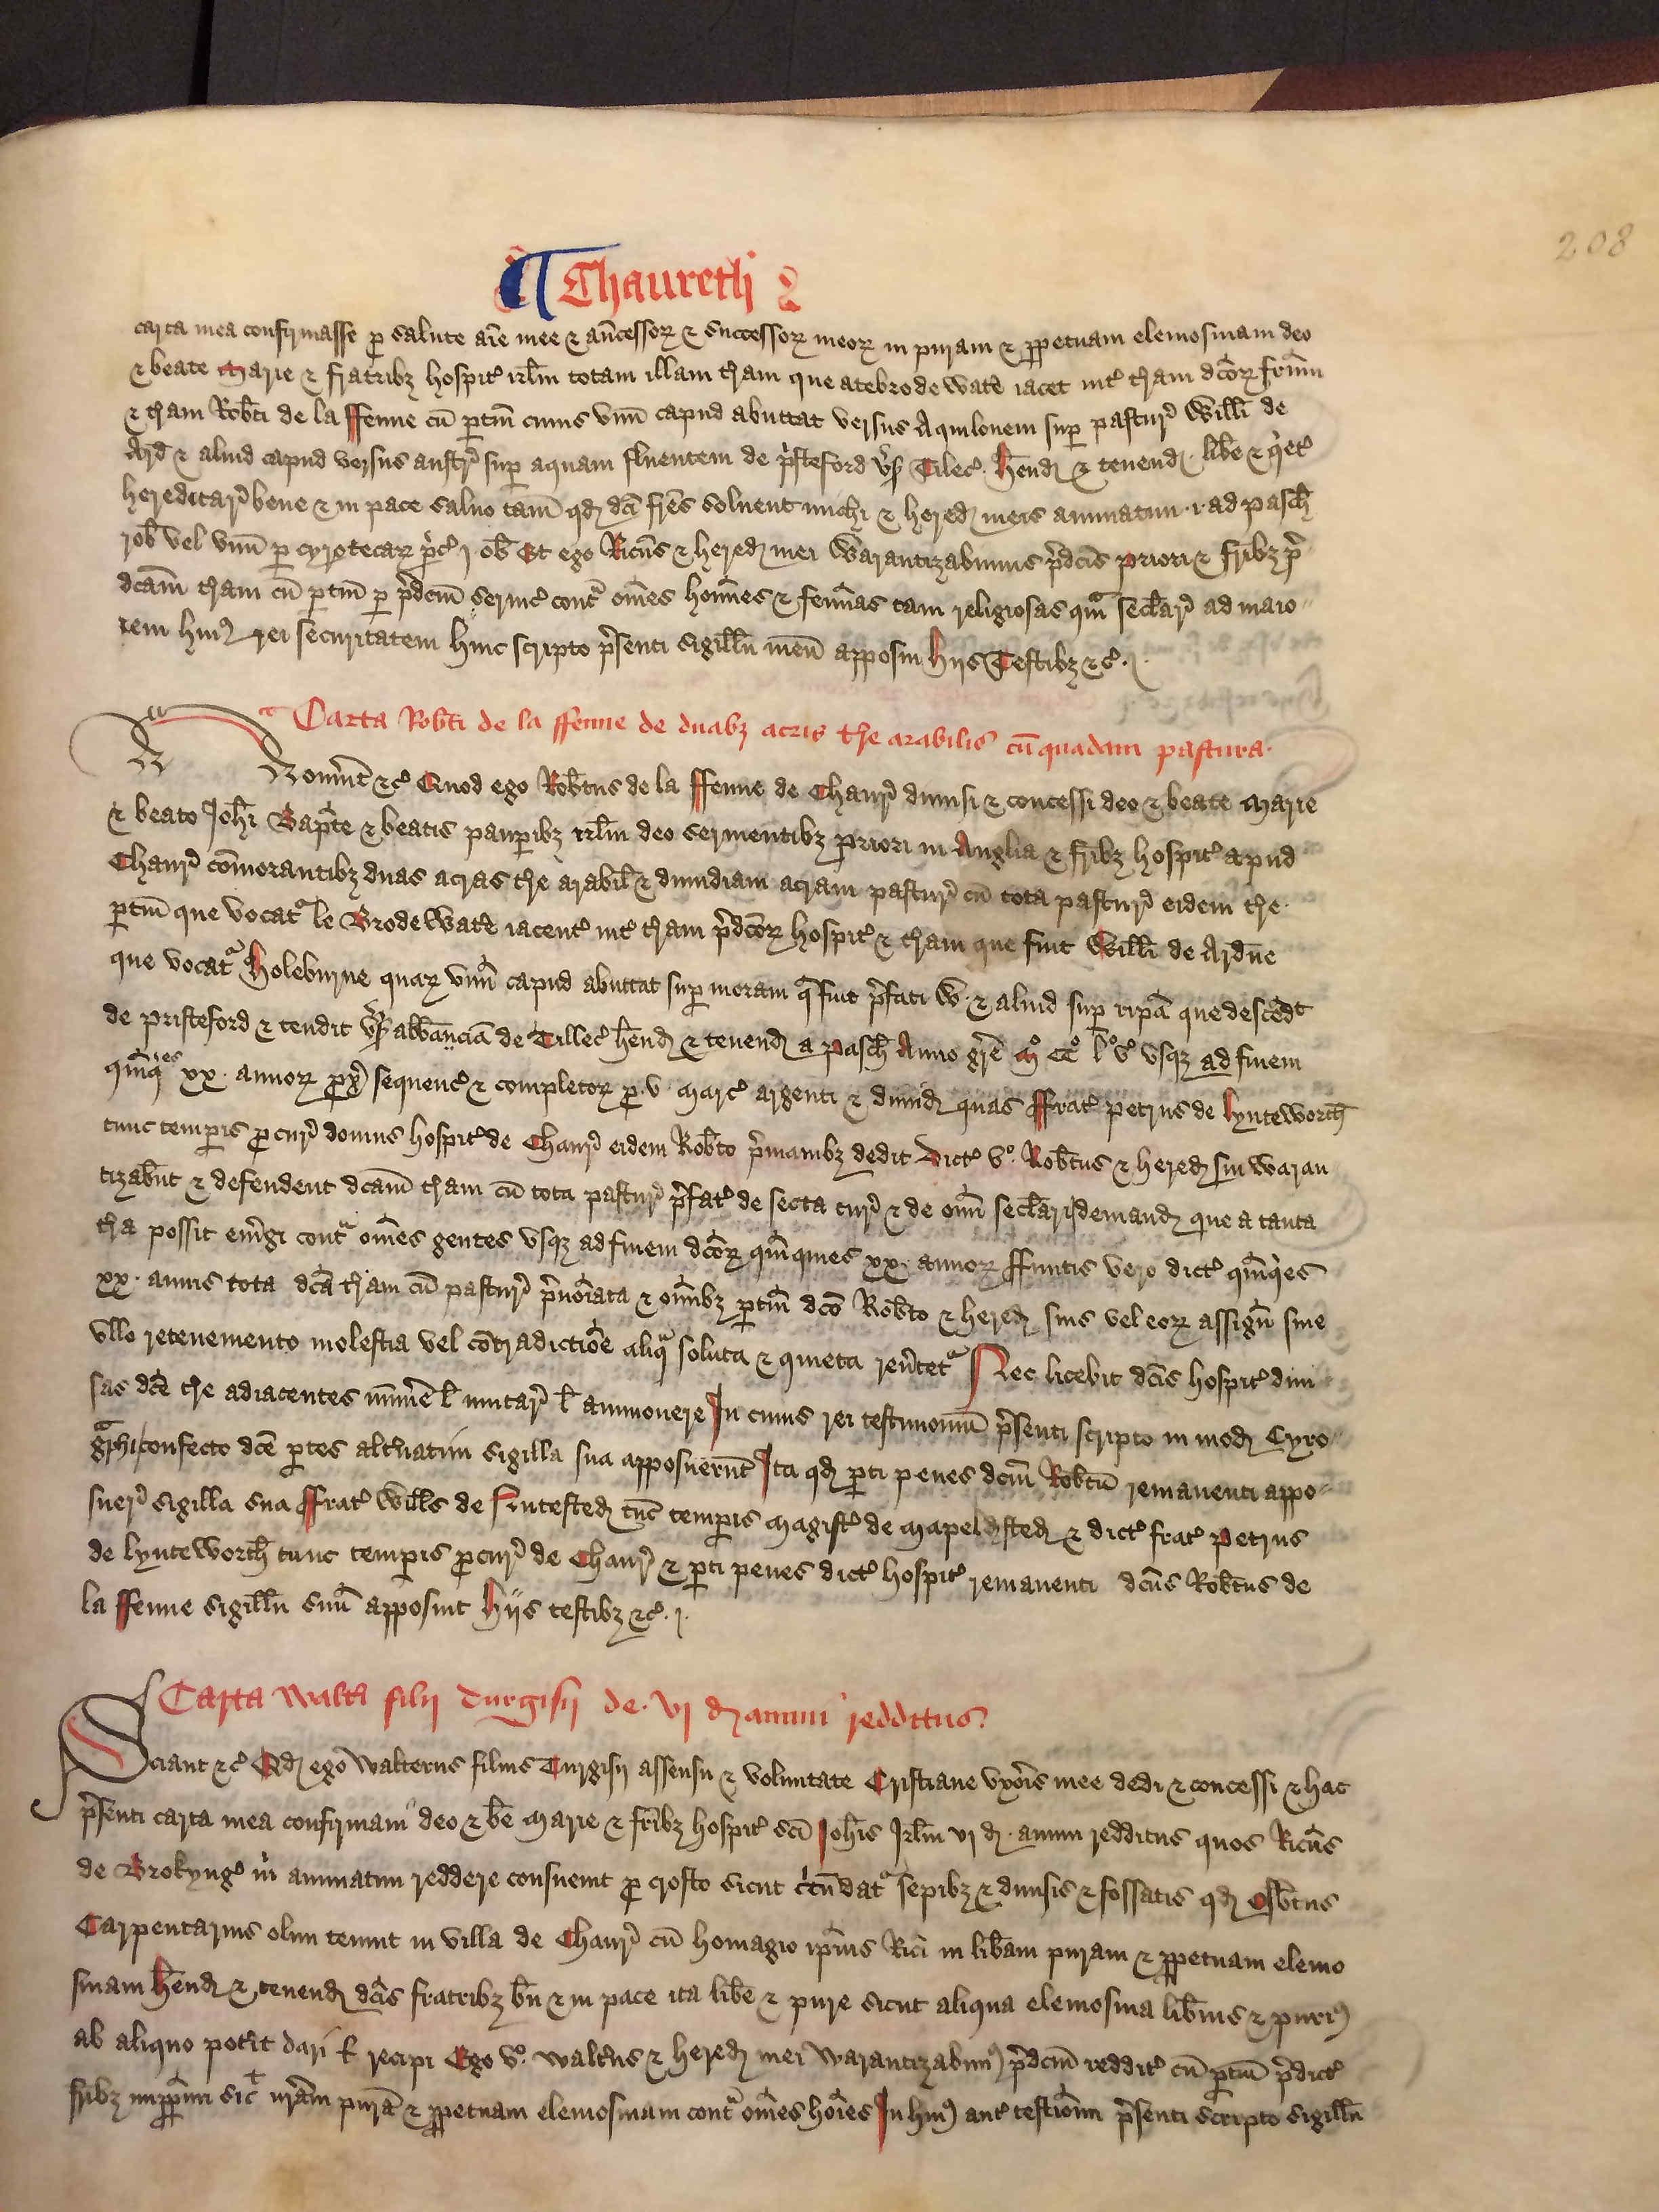 208
Chaureth
carta mea confirmasse ꝑ salute aīe mee ⁊ aūcessoꝝ ⁊ successoꝝ meoꝝ in puram ⁊ ꝑpetuam elemosinam deo
⁊ beate Marie ⁊ fratribꝫ hospit' irl̄m totam illam t̄ram que atebrodewatē iacet int' t̄ram dc̄oꝝ frūm
⁊ t̄ram Rob̄ti de la ffenne cū ꝑtin̄ cuius vnū capud abuttat versus Aquilonem suꝑ pastur' Willi de
Ard̄ ⁊ aliud capud versus austr' suꝑ aquam fluentem de p'steford v'sꝰ Tilet'. Hend̄ ⁊ tenend̄ lib̄e ⁊ q'et'
hereditar' bene ⁊ in pace saluo tam̄ qd̄ dc̄i fr̄es soluent michi ⁊ hered̄ meis annuatim .i. ad pasch̄
i ob̄ vel vnū ꝑ cyrotecaꝝ p'c' i. ob̄ Et ego Ric̄us ⁊ hered̄ mei Warantizabimus p'dc̄is Priori ⁊ fr̄ibꝫ p'
dc̄am t̄ram cū ꝑtin̄ ꝑ p'dcm̄ seruic' cont' om̄es hom̄es ⁊ femīas tam religiosas qm̄ secl̄ar' ad maio
rem huiꝰ rei securitatem huic scripto p'senti sigill̄u meū apposui Hijs Testibꝫ ⁊c'.
Carta Rob̄ti de la ffenne de duabꝫ acris t̄re arabilis cū quadam pastura.
Nouīnt ⁊c' Quod ego Rob̄tus de la ffenne de Chaur' dimisi ⁊ concessi deo ⁊ beate Marie
⁊ beato Joh̄i Bap̄te ⁊ beatis pauꝑibꝫ irl̄m deo seruientibꝫ priori in Anglia ⁊ fr̄ibꝫ hospit' apud
Chaur' com̄orantibꝫ duas acras t̄re arabil̄ ⁊ dimidiam acram pastur' cū tota pastur' eidem t̄re
ꝑtin̄ que vocat' le Brodewatē iacent' int' t̄ram p'dc̄oꝝ hospit' ⁊ t̄ram que fuit Willi de Ardn̄e
que vocat' Holeburne quaꝝ vnū capud abuttat suꝑ moram q̄ fuit p'fati W. ⁊ aliud suꝑ ripā que descēdt
de pristeford ⁊ tendit v'sꝰ abb̄anciā de Tillet' hend̄ ⁊ tenend̄ a pasch̄ Anno gr̄e Mº CCº lº vº vsqꝫ ad finem
qm̄qies xx. annoꝝ ꝓx' sequenc' ⁊ completoꝝ ꝓ .v. marc' argenti ⁊ dimid̄ quas ffrat' Petrus de Lynteworth̄
tunc temꝑis ꝓcur' domus hospit' de Chaur' eidem Rob̄to p'manibꝫ dedit Dict' vº. Rob̄tus ⁊ hered̄ sui waran
tizab̄nt ⁊ defendent dc̄am t̄ram cū tota pastur' p'fat' de secta cur' ⁊ de om̄i secl̄ari demand̄ que a tanta
t̄ra possit em̄gi cont' om̄es gentes vsqꝫ ad finem dc̄oꝝ qm̄quies xx. annoꝝ ffinitis vero dict' qm̄q'es
xx. annis tota dc̄a t̄ram cū pastur' p'nōiata ⁊ om̄ibꝫ ꝑtin̄ dc̄o Rob̄to ⁊ hered̄ suis vel eoꝝ assign̄ sine
vllo retenemento molestia vel cōtradictiōe aliq' soluta ⁊ quieta reū'tet' Nec licebit dc̄is hospit' diui
sas dc̄e t̄re adiacentes minūe l̄ mutar' l̄ ammouere In cuius rei testimoniū p'senti scripto in mod̄ Cyro
g'phi confecto dc̄e ꝑtes alt'natim sigilla sua apposuerūt Ita qd̄ ꝑti penes dcm̄ Rob̄tū remanenti appo
suer' sigilla sua ffrat' Will̄s de hntested̄ tūc temꝑis magist' de Mapeldested̄ ⁊ dict' frat' Petrus
de Lynteworth̄ tunc temꝑis ꝓcur' de Chaur' ⁊ ꝑti penes dict' hospit' remanenti dc̄us Rob̄tus de
la ffenne sigill̄u suū apposuit Hijs testibꝫ ⁊c'.
Carta Walt'i filij Turgisij de .vj d̄ annui redditus.
Sciant ⁊c' Qd̄ ego Walterus filius Turgisij assensu ⁊ voluntate Cristiane vxōris mee dedi ⁊ concessi ⁊ hac
p'senti carta mea confirmaui deo ⁊ b̄e Marie ⁊ fr̄ibꝫ hospit' sc̄i Joh̄is Jrl̄m vj d̄. annui redditus quos Ric̄us
de Brokyng' m' annuatim reddere consueuit ꝓ crofto sicut c'cūdat' sepibꝫ ⁊ diuisis ⁊ fossatis qd̄ Osb̄tus
Carpentarius olim tenuit in villa de Chaur' cū homagio ip̄ius Ric̄i in lib̄am puram ⁊ ꝑpetuam elemo
sinam Hend̄ ⁊ tenend̄ dc̄is fratribꝫ bn̄ ⁊ in pace ita lib̄e ⁊ pure sicut aliqua elemosina lib̄ius ⁊ puriꝰ
ab aliquo pot'it dari l̄ recipi Ego vº. Walt'us ⁊ hered̄ mei Warantizabimꝰ p'dcm̄ reddit' cū ꝑtin̄ p'dict'
fr̄ibꝫ imꝑpm̄ sic̄ nr̄am purā ⁊ ꝑpetuam elemosinam cont' om̄es hōies In huiꝰ aut' testiōm p'senti scripto sigill̄u